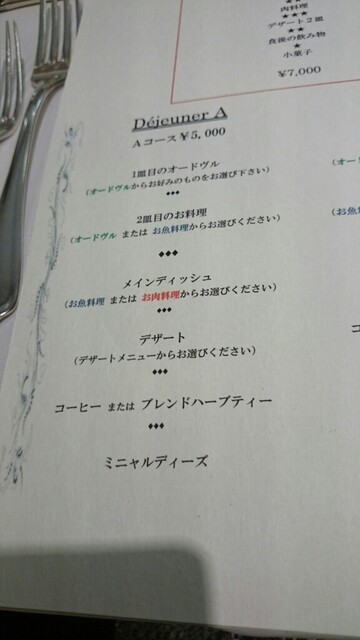 肉料理
★★★
デザート2皿
★★
食後の飲み物
★
小菓子
¥7,000
Déjeuner A
Aコース¥5,000
1皿目のオードヴル
(オードヴルからお好みのものをお選び下さい)
♦♦♦
2皿目のお料理
(オードヴル または お魚料理からお選びください)
♦♦♦
メインディッシュ
(お魚料理 または お肉料理からお選びください)
♦♦♦
デザート
(デザートメニューからお選びください)
♦♦♦
コーヒー または ブレンドハーブティー
♦♦♦
ミニャルディーズ
(オー
(お魚
コ